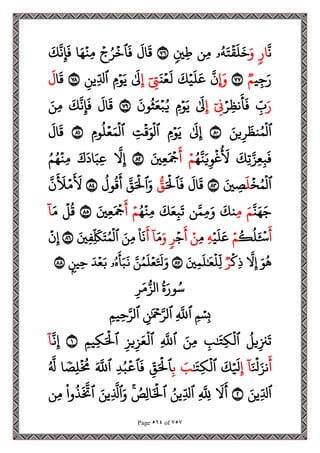 نَّارٍ وَخَلَقْتَهُۥ مِن طِينٍ ٧٦ قَالَ فَٱخْرُجْ مِنْهَا فَإِنَّكَ
رَجِيمٌ ٧٧ وَإِنَّ عَلَيْكَ لَعْنَتِىٓ إِلَىٰ يَوْمِ ٱلدِّينِ ٧٨ قَالَ
رَبِّ فَأَنظِرْنِىٓ إِلَىٰ يَوْمِ يُبْعَثُونَ ٧٩ قَالَ فَإِنَّكَ مِنَ
ٱلْمُنظَرِينَ ٨٠ إِلَىٰ يَوْمِ ٱلْوَقْتِ ٱلْمَعْلُومِ ٨١ قَالَ
فَبِعِزَّتِكَ لَأُغْوِيَنَّهُمْ أَجْمَعِينَ ٨٢ إِلَّا عِبَادَكَ مِنْهُمُ
ٱلْمُخْلَصِينَ ٨٣ قَالَ فَٱلْحَقُّ وَٱلْحَقَّ أَقُولُ ٨٤ لَأَمْلَأَنَّ
جَهَنَّمَ مِنكَ وَمِمَّن تَبِعَكَ مِنْهُمْ أَجْمَعِينَ ٨٥ قُلْ مَآ
أَسْـَٔلُكُمْ عَلَيْهِ مِنْ أَجْرٍ وَمَآ أَنَا۠ مِنَ ٱلْمُتَكَلِّفِينَ ٨٦ إِنْ
هُوَ إِلَّا ذِكْرٌ لِّلْعَـٰلَمِينَ ٨٧ وَلَتَعْلَمُنَّ نَبَأَهُۥ بَعْدَ حِينٍۭ ٨٨
سُورَةُ الزُّمَرِ
بِسْمِ ٱللَّهِ ٱلرَّحْمَـٰنِ ٱلرَّحِيمِ
تَنزِيلُ ٱلْكِتَـٰبِ مِنَ ٱللَّهِ ٱلْعَزِيزِ ٱلْحَكِيمِ ١ إِنَّآ
أَنزَلْنَآ إِلَيْكَ ٱلْكِتَـٰبَ بِٱلْحَقِّ فَٱعْبُدِ ٱللَّهَ مُخْلِصًا لَّهُ
ٱلدِّينَ ٢ أَلَا لِلَّهِ ٱلدِّينُ ٱلْخَالِصُ ۚ وَٱلَّذِينَ ٱتَّخَذُوا۟ مِن
Page ٥٦٤ of ٧٥٧